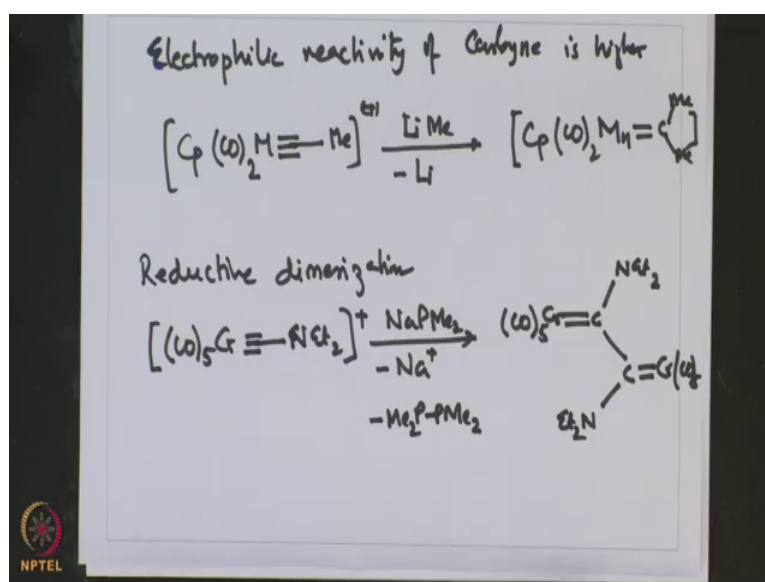 Electrophilic reactivity of Carbyne is higher
[Cp(CO)₂M≡—Me]⁽⁺⁾ LiMe - Li → [Cp(CO)₂Mn=C Me Me]
Reductive dimerization
[(CO)₅Cr≡—NEt₂]⁺ NaPMe₂ → (CO)₅Cr=C NEt₂
- Na⁺ C=Cr(CO)₅
- Me₂P-PMe₂ Et₂N
NPTEL